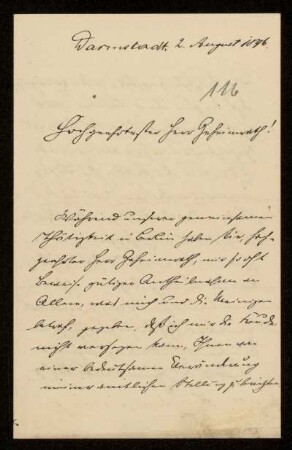 Darmstadt, 2. August 1896.
116
Hochgeehrtester Herr Geheimrath!
Während unserer gemeinsamen
Thätigkeit in Berlin haben Sie, hoch-
geehrter Herr Geheimrath, mir so oft
Beweise gütiger Antheilnahme an
Allem, was mich und die Meinigen
betraf, gegeben, daß ich mir die Freude
nicht versagen kann, Ihnen von
einer bedeutsamen Veränderung
meiner amtlichen Stellung zu berichten